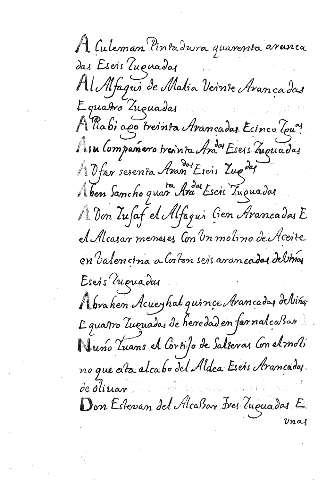 A Culeman Pintadura quarenta aranca
das Eseis Zuguadas
Al Alfaqui de Makia Veinte Arançadas
Equatro Zuguadas
A Rabi ago treinta Arancadas Ecinco Zguas
A su Compañero treinta Arandas Eseis Zuguadas
A Dfar sesenta Arandas Eseis Zugdas
Aben Sancho quarta Aradas Eseis Zuguadas
A Don Zusaf el Alfaqui Cien Arancadas E
el Alcasar meneses Con Un molino de Aceite
en Valencina a Coton seis arancadas de Viñas
Eseis Zuguadas
Abrahen Aueyhal quince Arancadas de Viñas
Equatro Zuguadas de heredad en farnalcasar
Nuño Zuans el Cortiſo de Salteras Con el moli
no que esta alcabo del Aldea Eseis Arancadas
de oliuar
Don Estevan del Alcasar Tres Zuguadas E
vnas